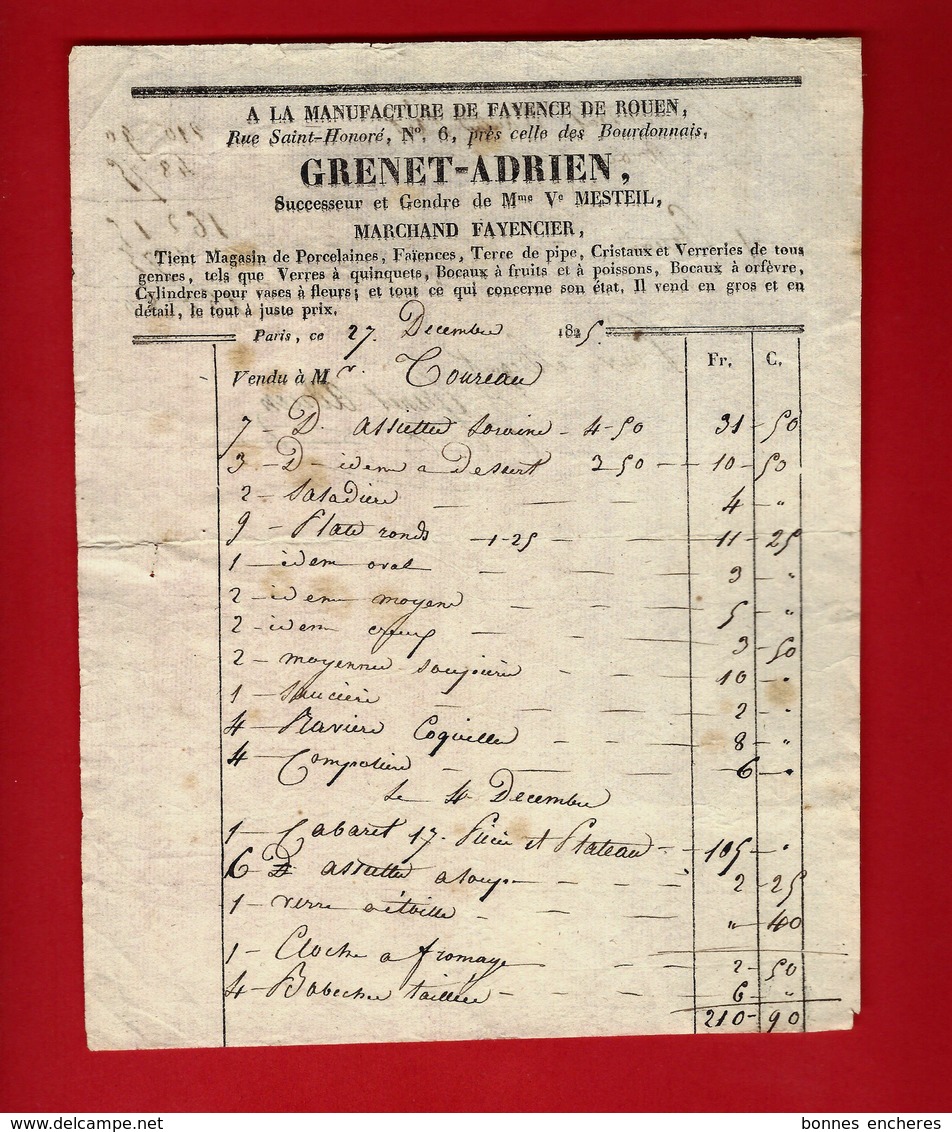 A LA MANUFACTURE DE FAYENCE DE ROUEN,
Rue Saint-Honoré, Nº. 6, près celle des Bourdonnais,
GRENET-ADRIEN,
Successeur et Gendre de Mme Ve MESTEIL,
MARCHAND FAYENCIER,
Tient Magasin de Porcelaines, Faïences, Terre de pipe, Cristaux et Verreries de tous
genres, tels que Verres à quinquets, Bocaux à fruits et à poissons, Bocaux à orfèvre,
Cylindres pour vases à fleurs; et tout ce qui concerne son état. Il vend en gros et en
détail, le tout à juste prix.
Paris, ce 27 Decembre 1825
Fr. C.
Vendu à Mr. Toureau
7 - D. assiettes 4-50 31-50
3 - D - idem a Dessert 3 50 - 10-50
2 - Saladiere 4 - "
9 - Plats ronds 1-25 11-25
1 - idem oval 3 - "
2 - idem moyens 5 - "
2 - idem creux 3 - 50
2 - moyennes soupiere 10 - "
1 - Sauciere 2 - "
4 - Raviere Coquilles 8 - "
4 - Compotiere 6 - "
Le 4 Decembre
1 - Cabaret 17. Piece et Plateau - 105 - "
6 assiettes a soupe 2 - 25
1 - verre " - 40
1 - Cloche a fromage 2 - 50
4 - Bobeches taillées 6 - "
210 - 90
bonnes encheres